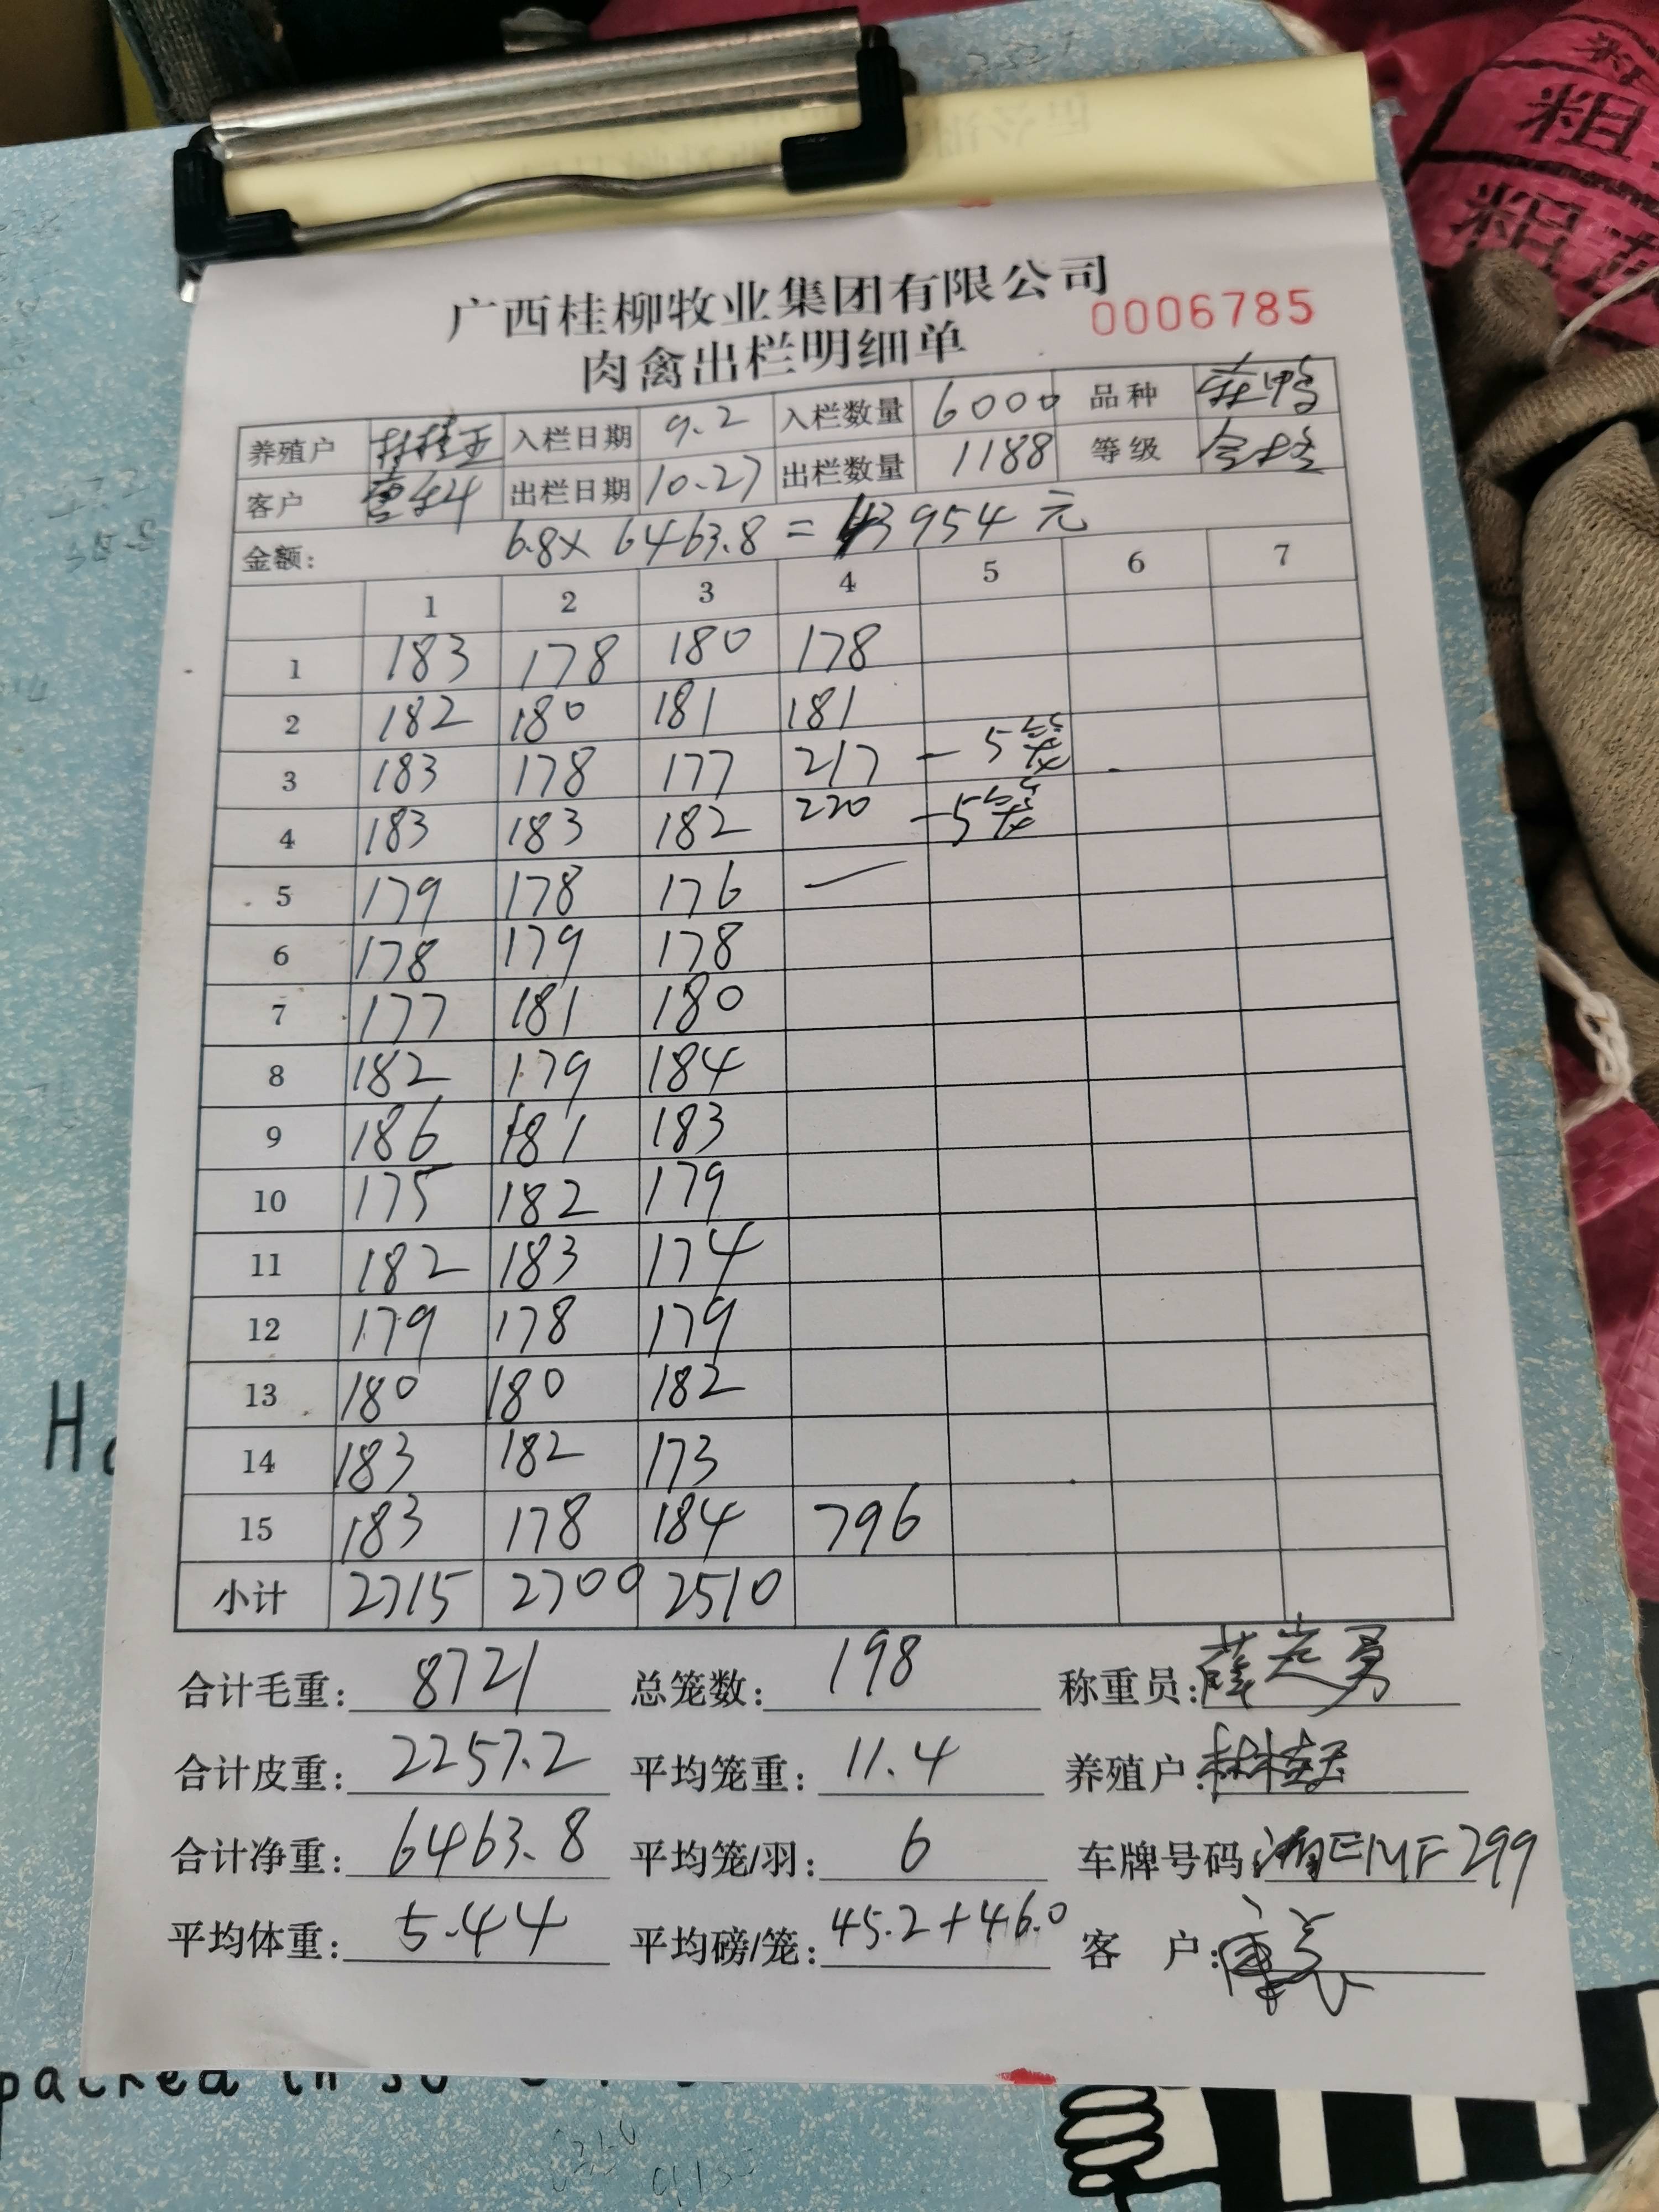 广西桂柳牧业集团有限公司
肉禽出栏明细单 0006785
养殖户 林桂玉 入栏日期 9.2 入栏数量 6000 品种
客户 出栏日期 10.27 出栏数量 1188 等级
金额: 6.8× 6463.8 = 43954 元
1 2 3 4 5 6 7
1 183 178 180 178
2 182 180 181 181
3 183 178 177 217 - 5笼
4 183 183 182 220 - 5笼
5 179 178 176 —
6 178 179 178
7 177 181 180
8 182 179 184
9 186 181 183
10 175 182 179
11 182 183 174
12 179 178 179
13 180 180 182
14 183 182 173
15 183 178 184 796
小计 2715 2700 2510
合计毛重: 8721 总笼数: 198 称重员: 薛忠勇
合计皮重: 2257.2 平均笼重: 11.4 养殖户:
合计净重: 6463.8 平均笼/羽: 6 车牌号码: 湘EMF299
平均体重: 5.44 平均磅/笼: 45.2+46.0 客 户:
粗
粗
packed in